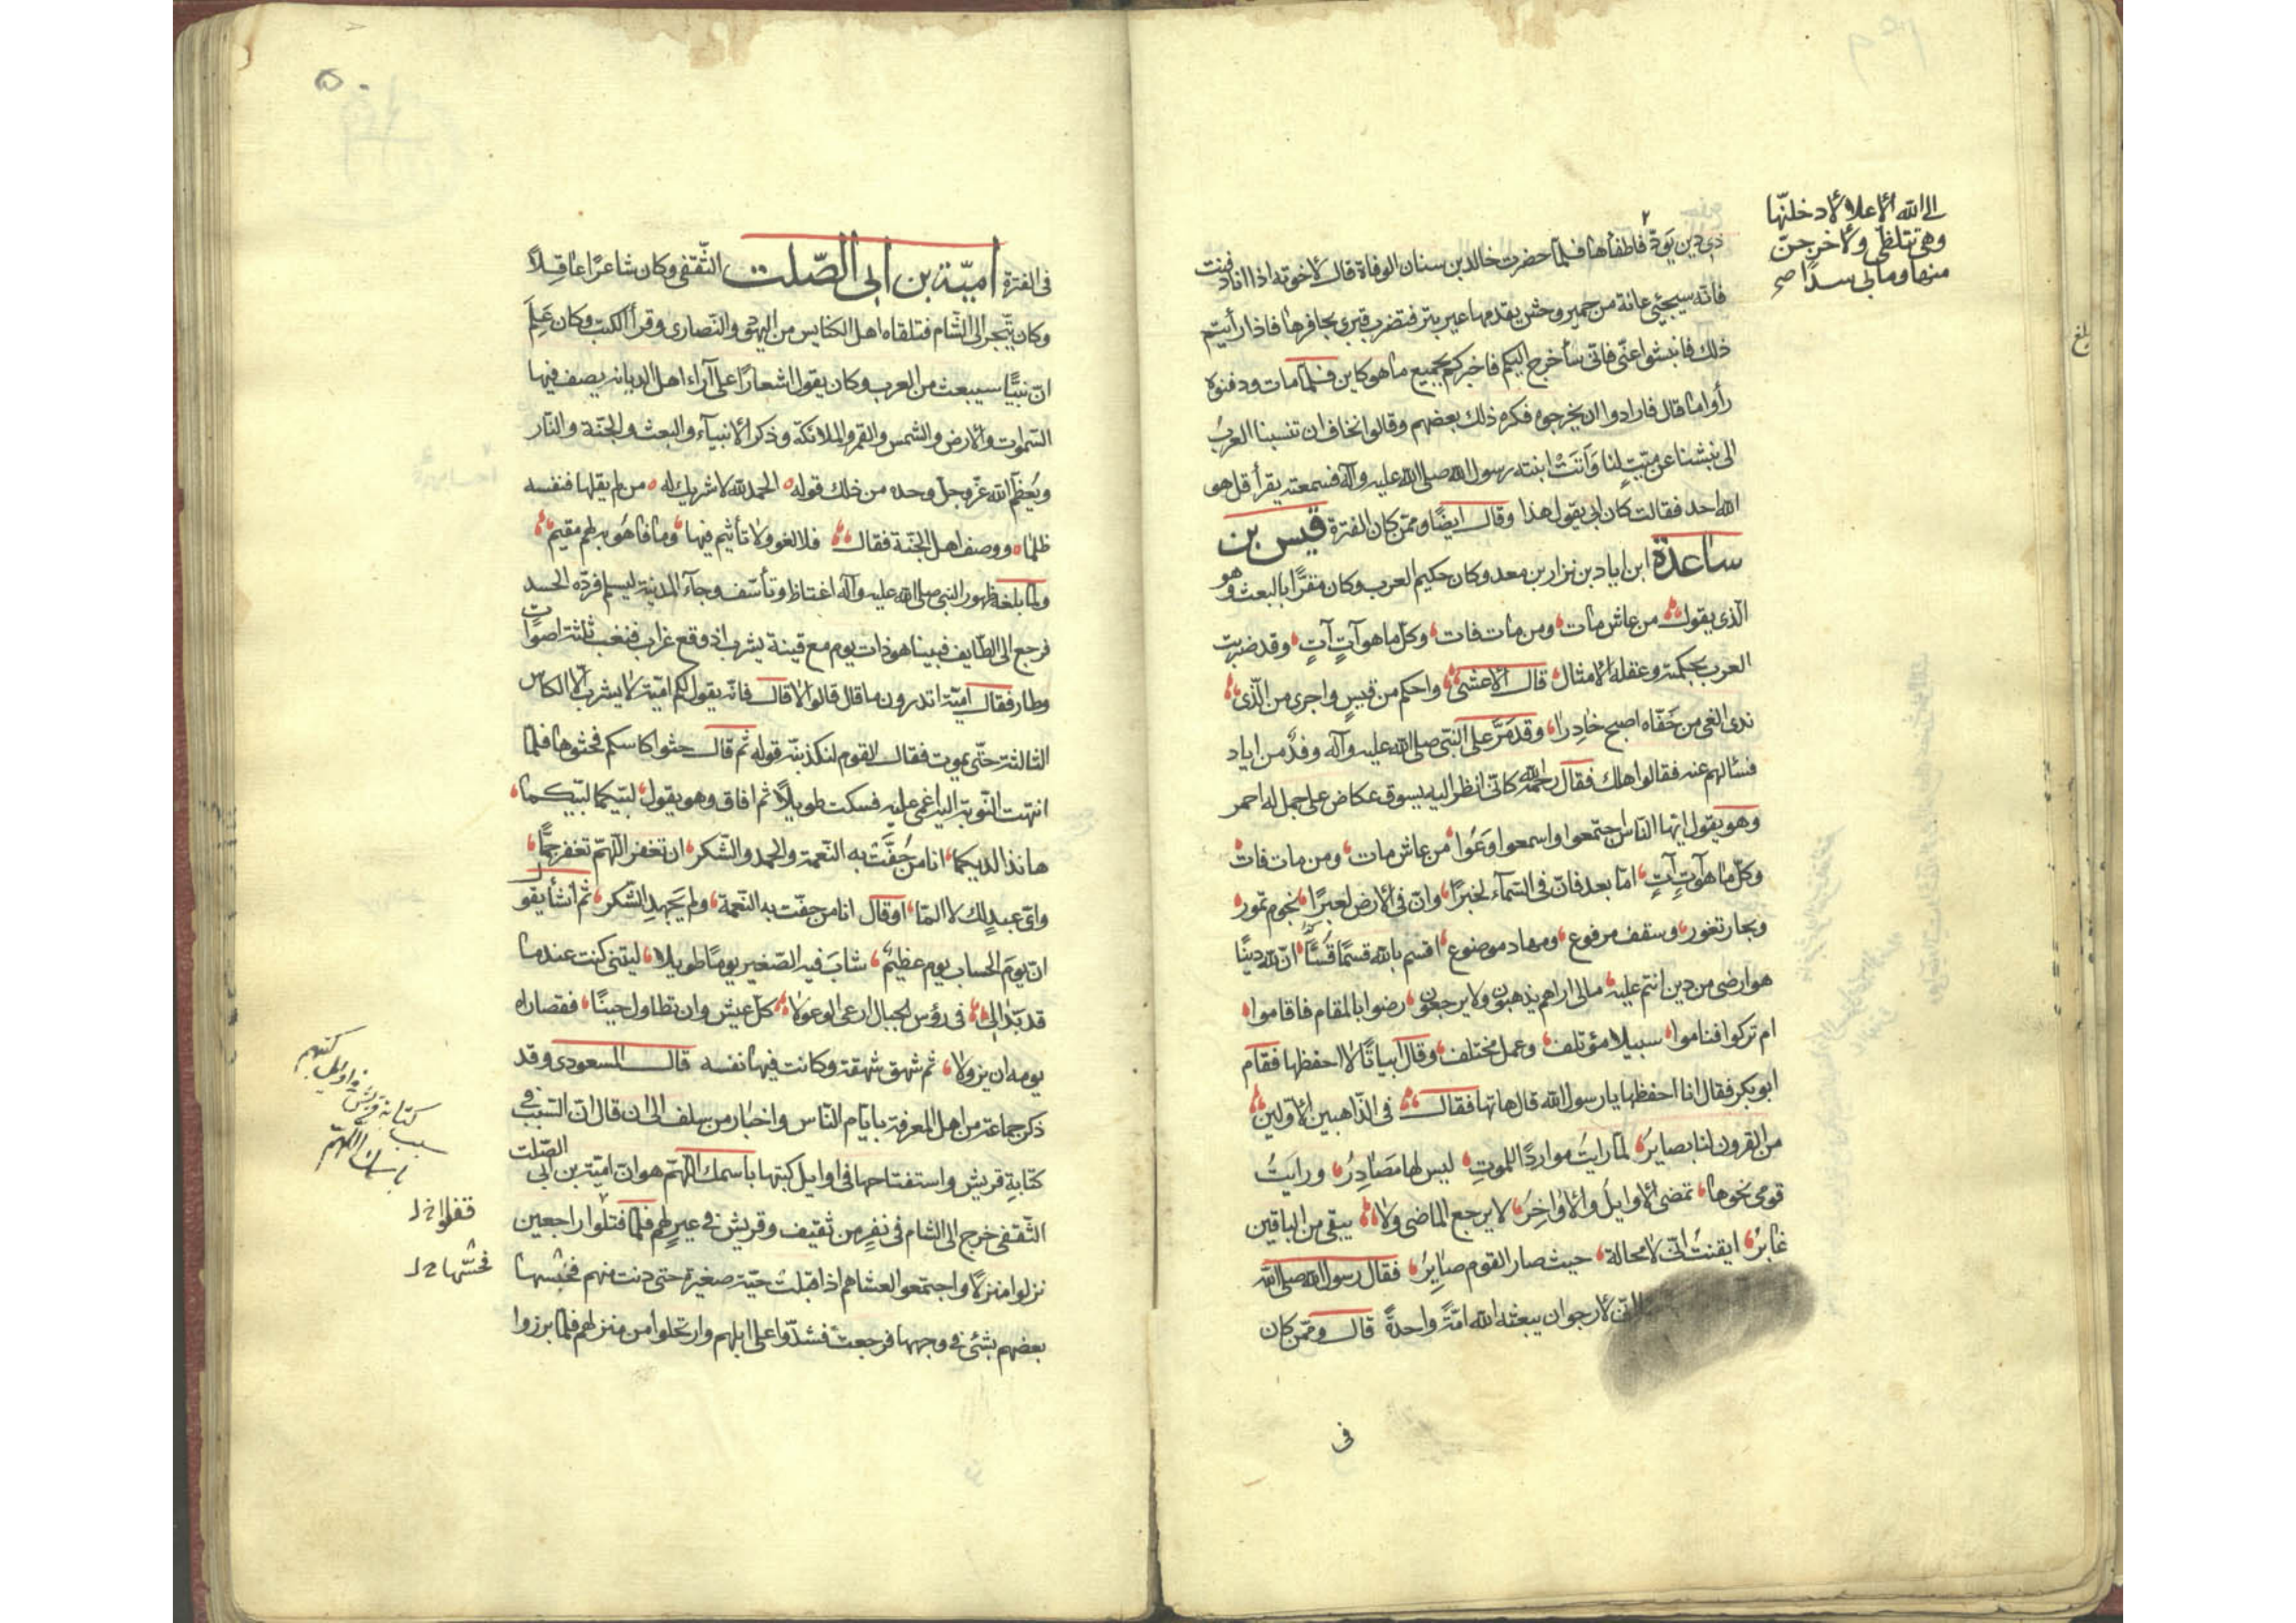 الى الله الأعلا لأدخلنّها
وهي تتلظّى ولأخرجنّ
منها وما بي سدا صح
ذي دين يودّ فاطفأها فلمّا حضرت خالد بن سنان الوفاة قال لأخوته اذا انا دفنت
فانّه سيجيئ عانة من حمير وحش يقدمها عير بتر فتضرب قبري بحافرها فاذا رأيتم
ذلك فانبشوا عنّي فانّي سأخرج اليكم فاخبركم بجميع ما هو كاين فلمّا مات ودفنوه
رأوا ما قال فارادوا ان يخرجوه فكره ذلك بعضهم وقالوا نخاف ان تنسبنا العربُ
الى نبشنا عن ميّتٍ لنا وَاَتَتْ ابنته رسول الله صلى الله عليه وآله فسمعته يقرأ قل هو
الله احد فقالت كان ابي يقول هذا وقال ايضًا وممّن كان الفترة قيس بن
ساعدة ابن اياد بن نزار بن معد وكان حكيم العرب وكان مقرًّا بالبعث وهو
الّذي يقول من عاش مات ومن مات فات وكلّ ما هو آتٍ آتٍ وقد ضربت
العرب بحكمته وعقله الأمثال قال الأعشى واحكم من قيسٍ واجرى من الّذي
ندى الغي من خَفّاه اصبح خادِرا وقد مَرَّ على النّبي صلى الله عليه وآله وفدٌ من اياد
فسألهم عنه فقالوا هلك فقال رحمه الله كانّي انظر اليه بسوق عكاض على جمل له احمر
وهو يقول ايّها النّاس اجتمعوا واسمعوا وَعُوا من عاش مات ومن مات فات
وكلّ ما هو آتٍ آتٍ امّا بعد فانّ في السّمآء لخبرًا وانّ في الأرض لعبرًا نجوم تمور
وبحار تغور وسقف مرفوع ومهاد موضوع اقسم بالله قسمًا قُسًّا انّ لله دينًا
هو ارضى من دين انتم عليه مالي اراهم يذهبون ولا يرجعون رضوا بالمقام فاقاموا
ام تركوا فناموا سبيلا مؤتلف وعمل مختلف وقال ابياتًا لا احفظها فقام
ابو بكر فقال انا احفظها يا رسول الله قال هاتها فقال في الذّاهبين الأوّلين
من القرون لنا بصاير لمّا رايتُ مواردًا للموتِ ليس لها مَصَادِرُ ورايتُ
قومي نحوها تمضي الأوايل والأواخِرَ لا يرجع الماضي ولا يبقى من الباقين
غابرُ ايقنتُ انّي لا محالة حيث صار القوم صايِرُ فقال رسول الله صلى الله
انّي لأرجو ان يبعثه الله امّةً واحدةً قال وممّن كان
في
في الفترة اميّة بن ابي الصّلت الثّقفي وكان شاعرًا عاقلًا
وكان يتّجر الى الشّام فتلقاه اهل الكنايس من اليهود والنّصارى وقرأ الكتب وكان عَلِمَ
انّ نبيًّا سيبعث من العرب وكان يقول اشعارًا على آراء اهل الديانه يصف فيها
السّموات والأرض والشمس والقمر والملائكة وذكر الأنبيآء والبعث والجنّة والنّار
ويُعظّم الله عزّ وجلّ وحده من ذلك قوله الحمد لله لا شريك له من لم يقلها فنفسه
ظلما ووصف اهل الجنّة فقال فلا لغو ولا تأثيم فيها وما فاهُو به لهم مقيم
ولمّا بلغه ظهور النبي صلى الله عليه وآله اغتاظ وتأسّف وجآء المدينة ليسلم فردّه الحسد
فرجع الى الطّايف فبينا هو ذات يوم مع قينة يشرب اذ وقع غراب فنعب ثلثة اصوات
وطار فقال اميّة اتدرون ما قال قالوا لا قال فانّه يقول لكم اميّة لا يشرب الا الكاس
الثالثة حتّى يموت فقال القوم لنكذبنّه قوله ثم قال حثوا كاسكم فحثوها فلمّا
انتهت النّوبة اليه اغمي عليه فسكت طويلًا ثم افاق وهو يقول لبّيكما لبّيكما
هانذا لديكما انا من حُفَّت به النّعمة والحمد والشّكر ان تغفر اللّهمّ تغفر جمًّا
وايّ عبدٍ لك لا المّا او قال انا من حفّت به النّعمة ولم يَجهدِ الشّكر ثم انشأ يقول
انّ يومَ الحساب يوم عظيمٌ شابَ فيه الصّغير يومًا طويلا ليتني كنت عندما
قد بدا لي في رؤس الجبال ارعى الوعولا كلّ عيش وان تطاول حينًا فقصاراه
يومه ان يزولا ثم شهق شهقة وكانت فيها نفسه قال المسعودي وقد
ذكر جماعة من اهل المعرفة بايّام النّاس واخبار من سلف الى ان قال انّ السّبب في
كتابةِ قريش واستفتاحها في اوايل كتبها باسمك اللّهمّ هو انّ اميّة بن ابي الصّلت
الثّقفي خرج الى الشام في نفرٍ من ثقيف وقريش في عيرٍ لهم فلمّا قتلوا راجعين
نزلوا منزلًا واجتمعوا لعشاهم اذ اقبلت حيّة صغيرة حتى دنت منهم فحبسها
بعضهم بشئ في وجهها فرجعت فشدّوا على ابلهم وارتحلوا من منزلهم فلمّا برزوا
سبب كتابة قريش في اوايل كتبهم
باسمك اللّهمّ
قفلوا خل
فحشّها خل
بلغ